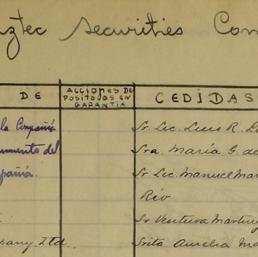 aztec Securities Com
DE
ACCIONES DE
POSITADAS EN
GARANTIA
CEDIDAS
la Compañía
Sr. Lic. Luis R. L
umento del
Sra. María G. de
pañía.
Sr. Lic. Manuel Mar
Río
Sr. Ventura Martín
pany, Ltd.
Srita. Aurelia Ma